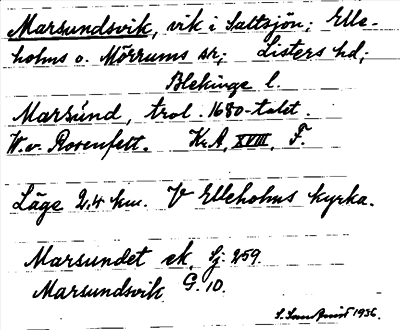 Marsundsvik, vik i Saltsjön; Elle-
holms o. Mörrums sr; Listers hd;
Blekinge l.
Marsúnd, trol. 1680-talet.
W. v. Rosenfelt. Kr.A, XVIII, F.
Läge 2,4 km. V Elleholms kyrka.
Marsundet ek. Sj. 259.
Marsundsvik. G. 10.
1936.